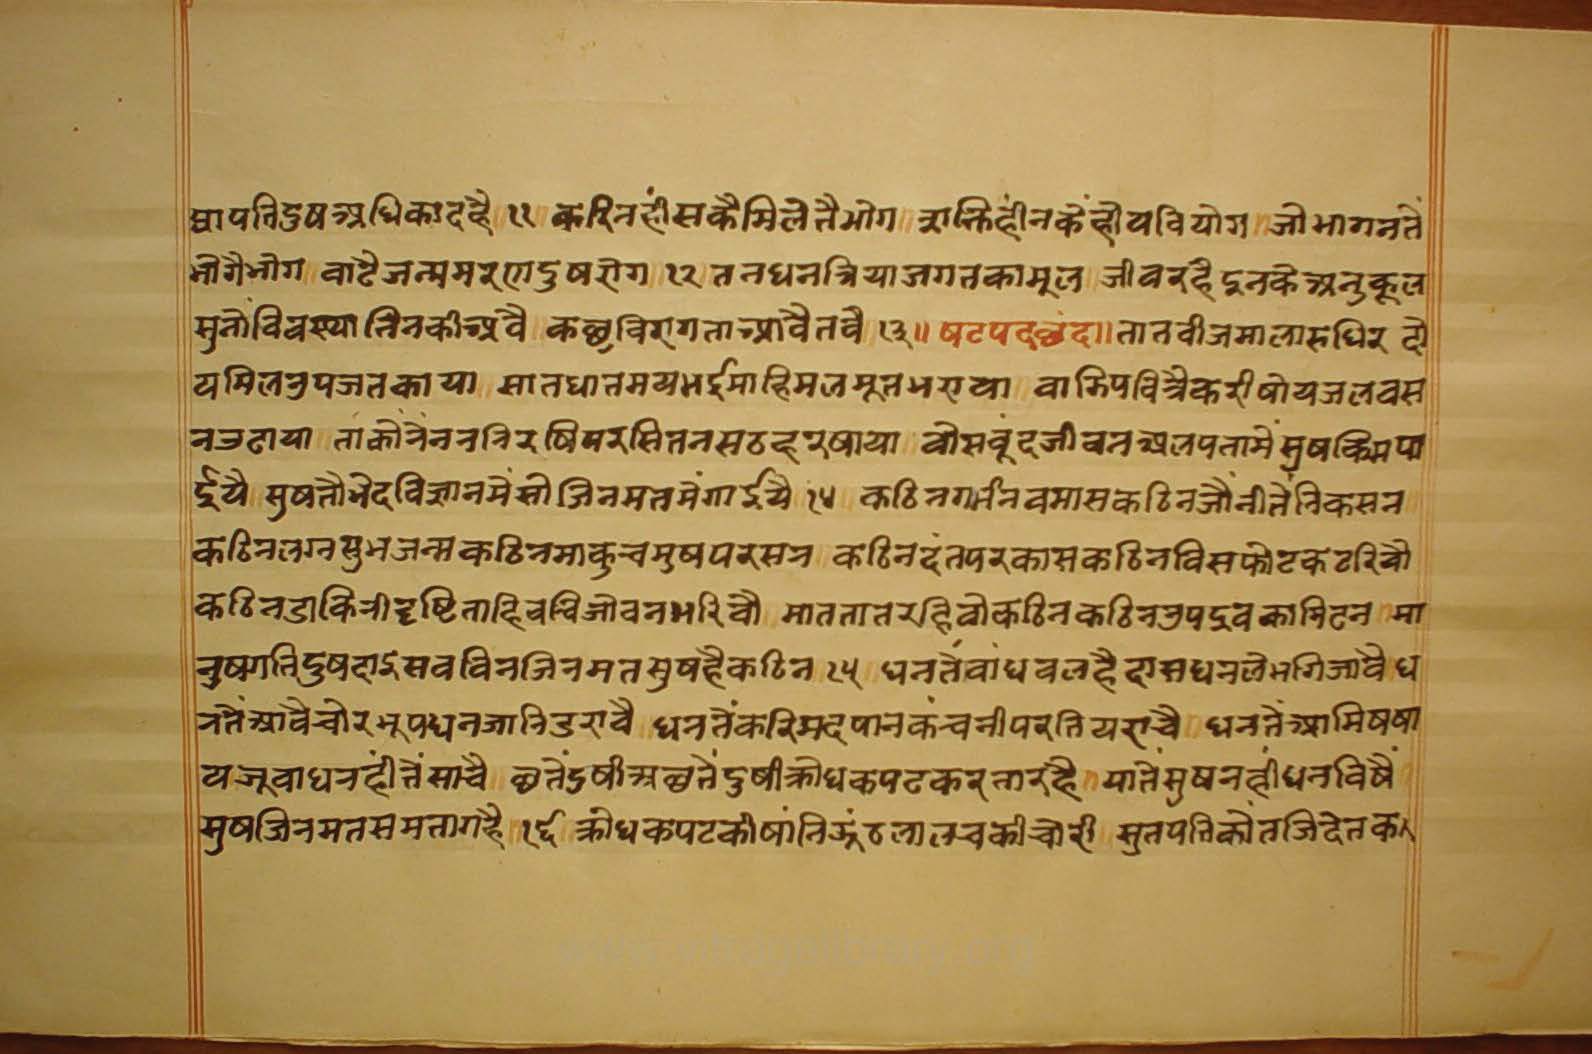 द्यापतिदुषअधिकादहै ११ करिनहींसकैमिलेतैभोग शक्तिहीनकैंह्वैयवियोग जोभागनतें
भोगैभोग वाढैजन्ममरणदुषरोग १२ तनधनत्रियाजगतकामूल जीवरहैइनकेअनुकूल
सुनोंविवस्थातिनकीअवै कछुविरागताआवैतवै १३॥ षटपदछंद॥ तातवीजमालारुधिर दो
यमिलउपजतकाया सातधातमयभईमाहिमलमूतभराया वामिपवित्रैकरीषोयजलवस
नउटाया ताकौंनैनननिरषिपरसितनसठहरषाया वोसवूंदजीवनअलपतामैंसुषकिमपा
ईयै सुषतौभेदविज्ञानमैंसोजिनमतमैंगाईयै १४ कठिनगर्भनवमासकठिनजौंनीतैंनिकसन
कठिनलगनसुभजन्मकठिनमाकुचमुषपरसन कठिनदंतपरकासकठिनविसफोटकटरिवौ
कठिनडाकिनीदृष्टिताहिवचिजोवनभरिवौ माततातरहिवोकठिनकठिनउपद्रवकामिटन मा
नुषगतिदुषदाइसवविनजिनमतसुषहैकठिन १५ धनतैंवांधवलहैदासधनलेभगिजावै ध
नतैंआवैचोरभूपधनजानिडरावै धनतैंकरिमदपानकंचनीपरतियराचै धनतैंआमिषषा
यजूवाधनहींतैंसाचै छतैंदुषीअछतैंदुषीक्रोधकपटकरतारहै यातैंसुषनहींधनविषैं
सुषजिनमतसमतागहै १६ क्रोधकपटकीषांनिझूंठलालचकीचोरी सुतपतिकौंतजिदेतका